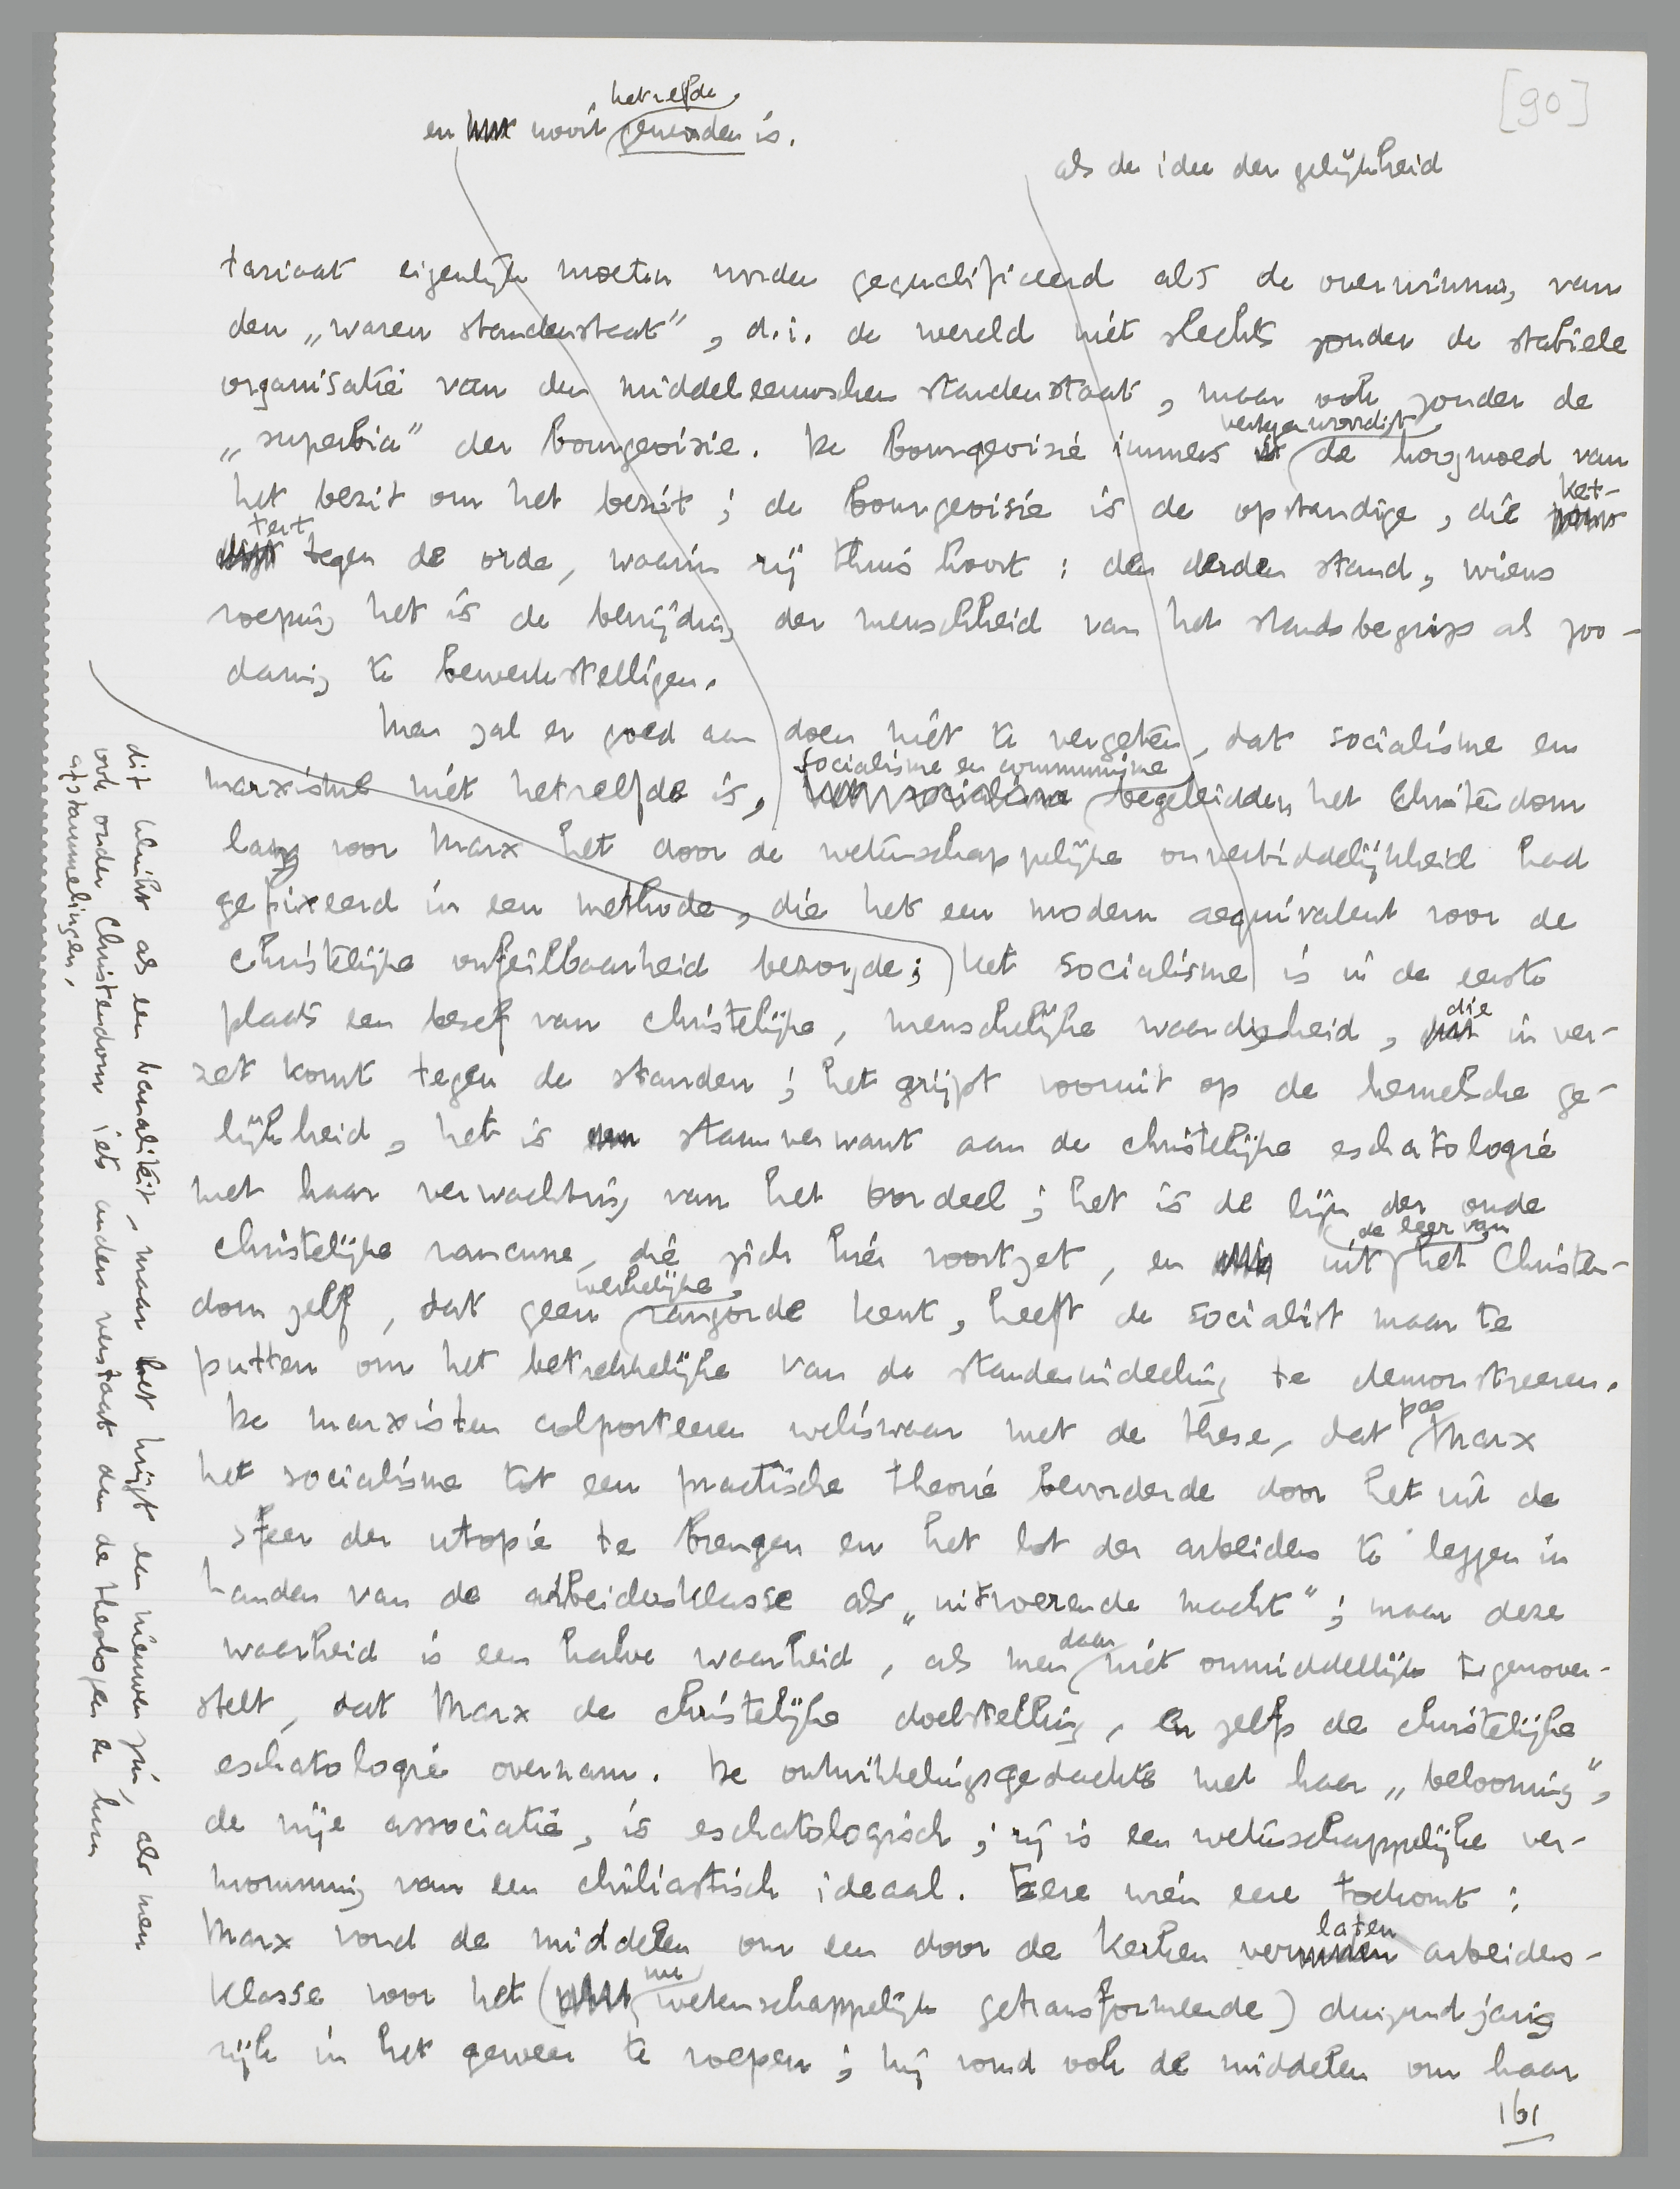 [90]
hetzelfde
en nooit geworden is.
als de idee der gelijkheid
tariaat eigenlijk moeten worden gequalificeerd als de overwinning van
den „waren standenstaat”, d.i. de wereld niét slechts zonder de stabiele
organisatie van den middeleeuwschen standenstaat, maar ook zonder de
vertegenwoordigt
„superbia” der bourgeoisie. De bourgeoisie immers de hoogmoed van
het bezit om het bezit; de bourgeoisie is de opstandige, die ket-
tert tegen de orde, waarin zij thuis hoort: den derden stand, wiens
roeping het is de bevrijding der menschheid van het standsbegrip als zoo-
danig te bewerkstelligen.
Men zal er goed aan doen niet te vergeten, dat socialisme en
socialisme en communisme
marxisme niet hetzelfde is, begeleidden het Christendom
lang voor Marx het door de wetenschappelijke onverbiddelijkheid had
gefixeerd in een methode, die het een modern aequivalent voor de
christelijke onfeilbaarheid bezorgde; het socialisme is in de eerste
plaats een besef van christelijke, menschelijke waardigheid, die in ver-
zet komt tegen de standen; het grijpt vooruit op de hemelsche ge-
lijkheid, het is stamverwant aan de christelijke eschatologie
met haar verwachting van het oordeel; het is de lijn der oude
de leer van
christelijke rancune, die zich hier voortzet, en uit het Christen-
werkelijke
dom zelf, dat geen rangorde kent, heeft de socialist maar te
putten om het betrekkelijke van de standenindeeling te demonstreeren.
pas
De marxisten colporteeren weliswaar met de these, dat Marx
het socialisme tot een practische theorie bevorderde door het uit de
sfeer der utopie te brengen en het lot der arbeiders te leggen in
handen van de arbeidersklasse als „uitvoerende macht”; maar deze
daar
waarheid is een halve waarheid, als men niet onmiddellijk tegenover-
stelt, dat Marx de christelijke doelstelling, en zelfs de christelijke
eschatologie overnam. De ontwikkelingsgedachte met haar „belooning”,
de vrije associatie, is eschatologisch; zij is een wetenschappelijke ver-
momming van een chiliastisch ideaal. Eere wien eere toekomt:
laten
Marx vond de middelen om een door de kerken ver arbeiders-
nu
klasse voor het (wetenschappelijk getransformeerde) duizendjarig
rijk in het geweer te roepen; hij vond ook de middelen om haar
161
dit klinkt als een banaliteit, maar het krijgt een nieuwen zin, als men
ook onder Christendom iets anders verstaat dan de theologen en hun
afstammelingen.